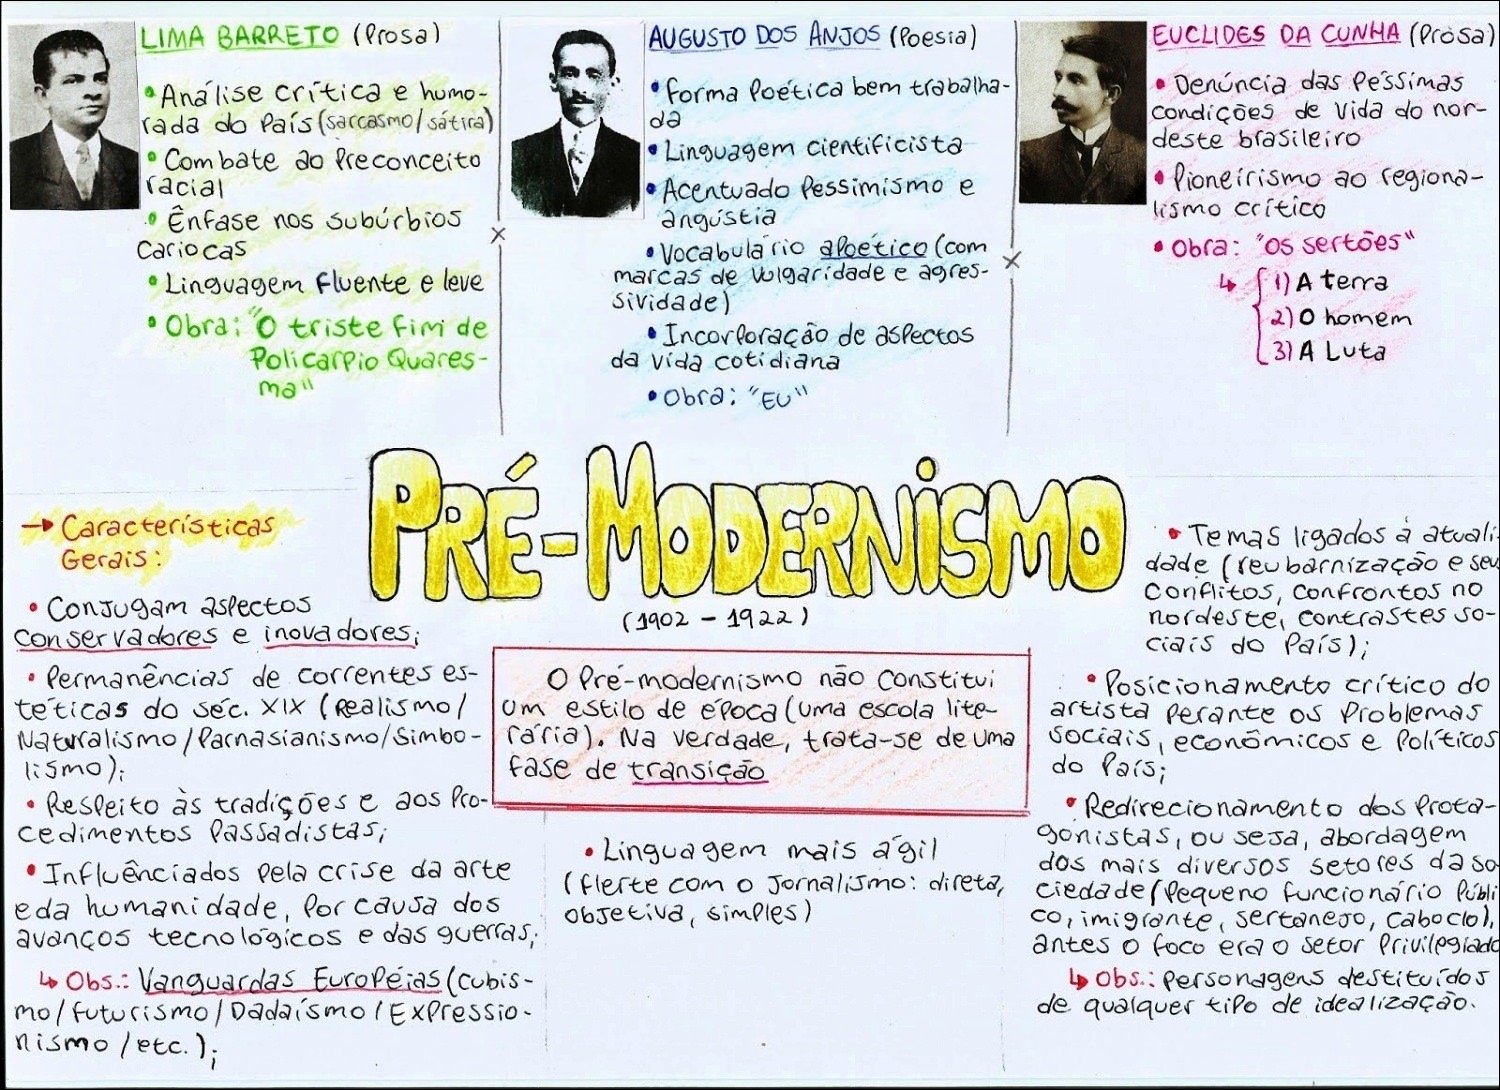 LIMA BARRETO (Prosa)
• Análise crítica e humo-
rada do País (sarcasmo/sátira)
• Combate ao Preconceito
racial
• Ênfase nos subúrbios
Cariocas
• Linguagem fluente e leve
• Obra: "O triste fim de
Policarpio Quares-
ma"
AUGUSTO DOS ANJOS (Poesia)
• Forma Poética bem trabalha-
da
• Linguagem cientificista
• Acentuado Pessimismo e
angústia
• Vocabulário apoético (com
marcas de vulgaridade e agres-
sividade)
• Incorporação de aspectos
da vida cotidiana
• Obra: "EU"
EUCLIDES DA CUNHA (Prosa)
• Denúncia das Péssimas
condições de vida do nor-
deste brasileiro
• Pioneirismo ao regiona-
lismo crítico
• Obra: "Os sertões"
↳ { 1) A terra
2) O homem
3) A Luta
PRÉ-MODERNISMO
(1902 - 1922)
O Pré-modernismo não constitui
um estilo de época (uma escola lite-
rária). Na verdade, trata-se de uma
fase de transição
→ Características
Gerais:
• Conjugam aspectos
conservadores e inovadores;
• Permanências de correntes es-
téticas do séc. XIX (Realismo/
Naturalismo/Parnasianismo/Simbo-
lismo);
• Respeito às tradições e aos Pro-
cedimentos Passadistas;
• Influênciados pela crise da arte
e da humanidade, Por causa dos
avanços tecnológicos e das guerras;
↳ Obs.: Vanguardas Européias (Cubis-
mo/Futurismo/Dadaísmo/Expressio-
nismo/etc.);
• Linguagem mais ágil
(flerte com o Jornalismo: direta,
objetiva, simples)
• Temas ligados à atuali-
dade (reubarnização e seus
conflitos, confrontos no
nordeste, contrastes so-
ciais do País);
• Posicionamento crítico do
artista perante os Problemas
sociais, econômicos e Políticos
do País;
• Redirecionamento dos Prota-
gonistas, ou seja, abordagem
dos mais diversos setores da so
ciedade (Pequeno funcionário Públi
co, imigrante, sertanejo, caboclo),
antes o foco era o setor Privilegiado
↳ Obs.: Personagens destituídos
de qualquer tipo de idealização.